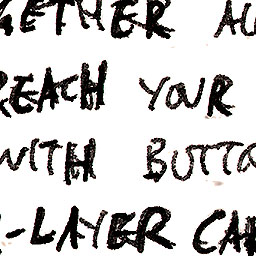 GETHER
REACH YOUR
WITH BUTTO
-LAYER CA